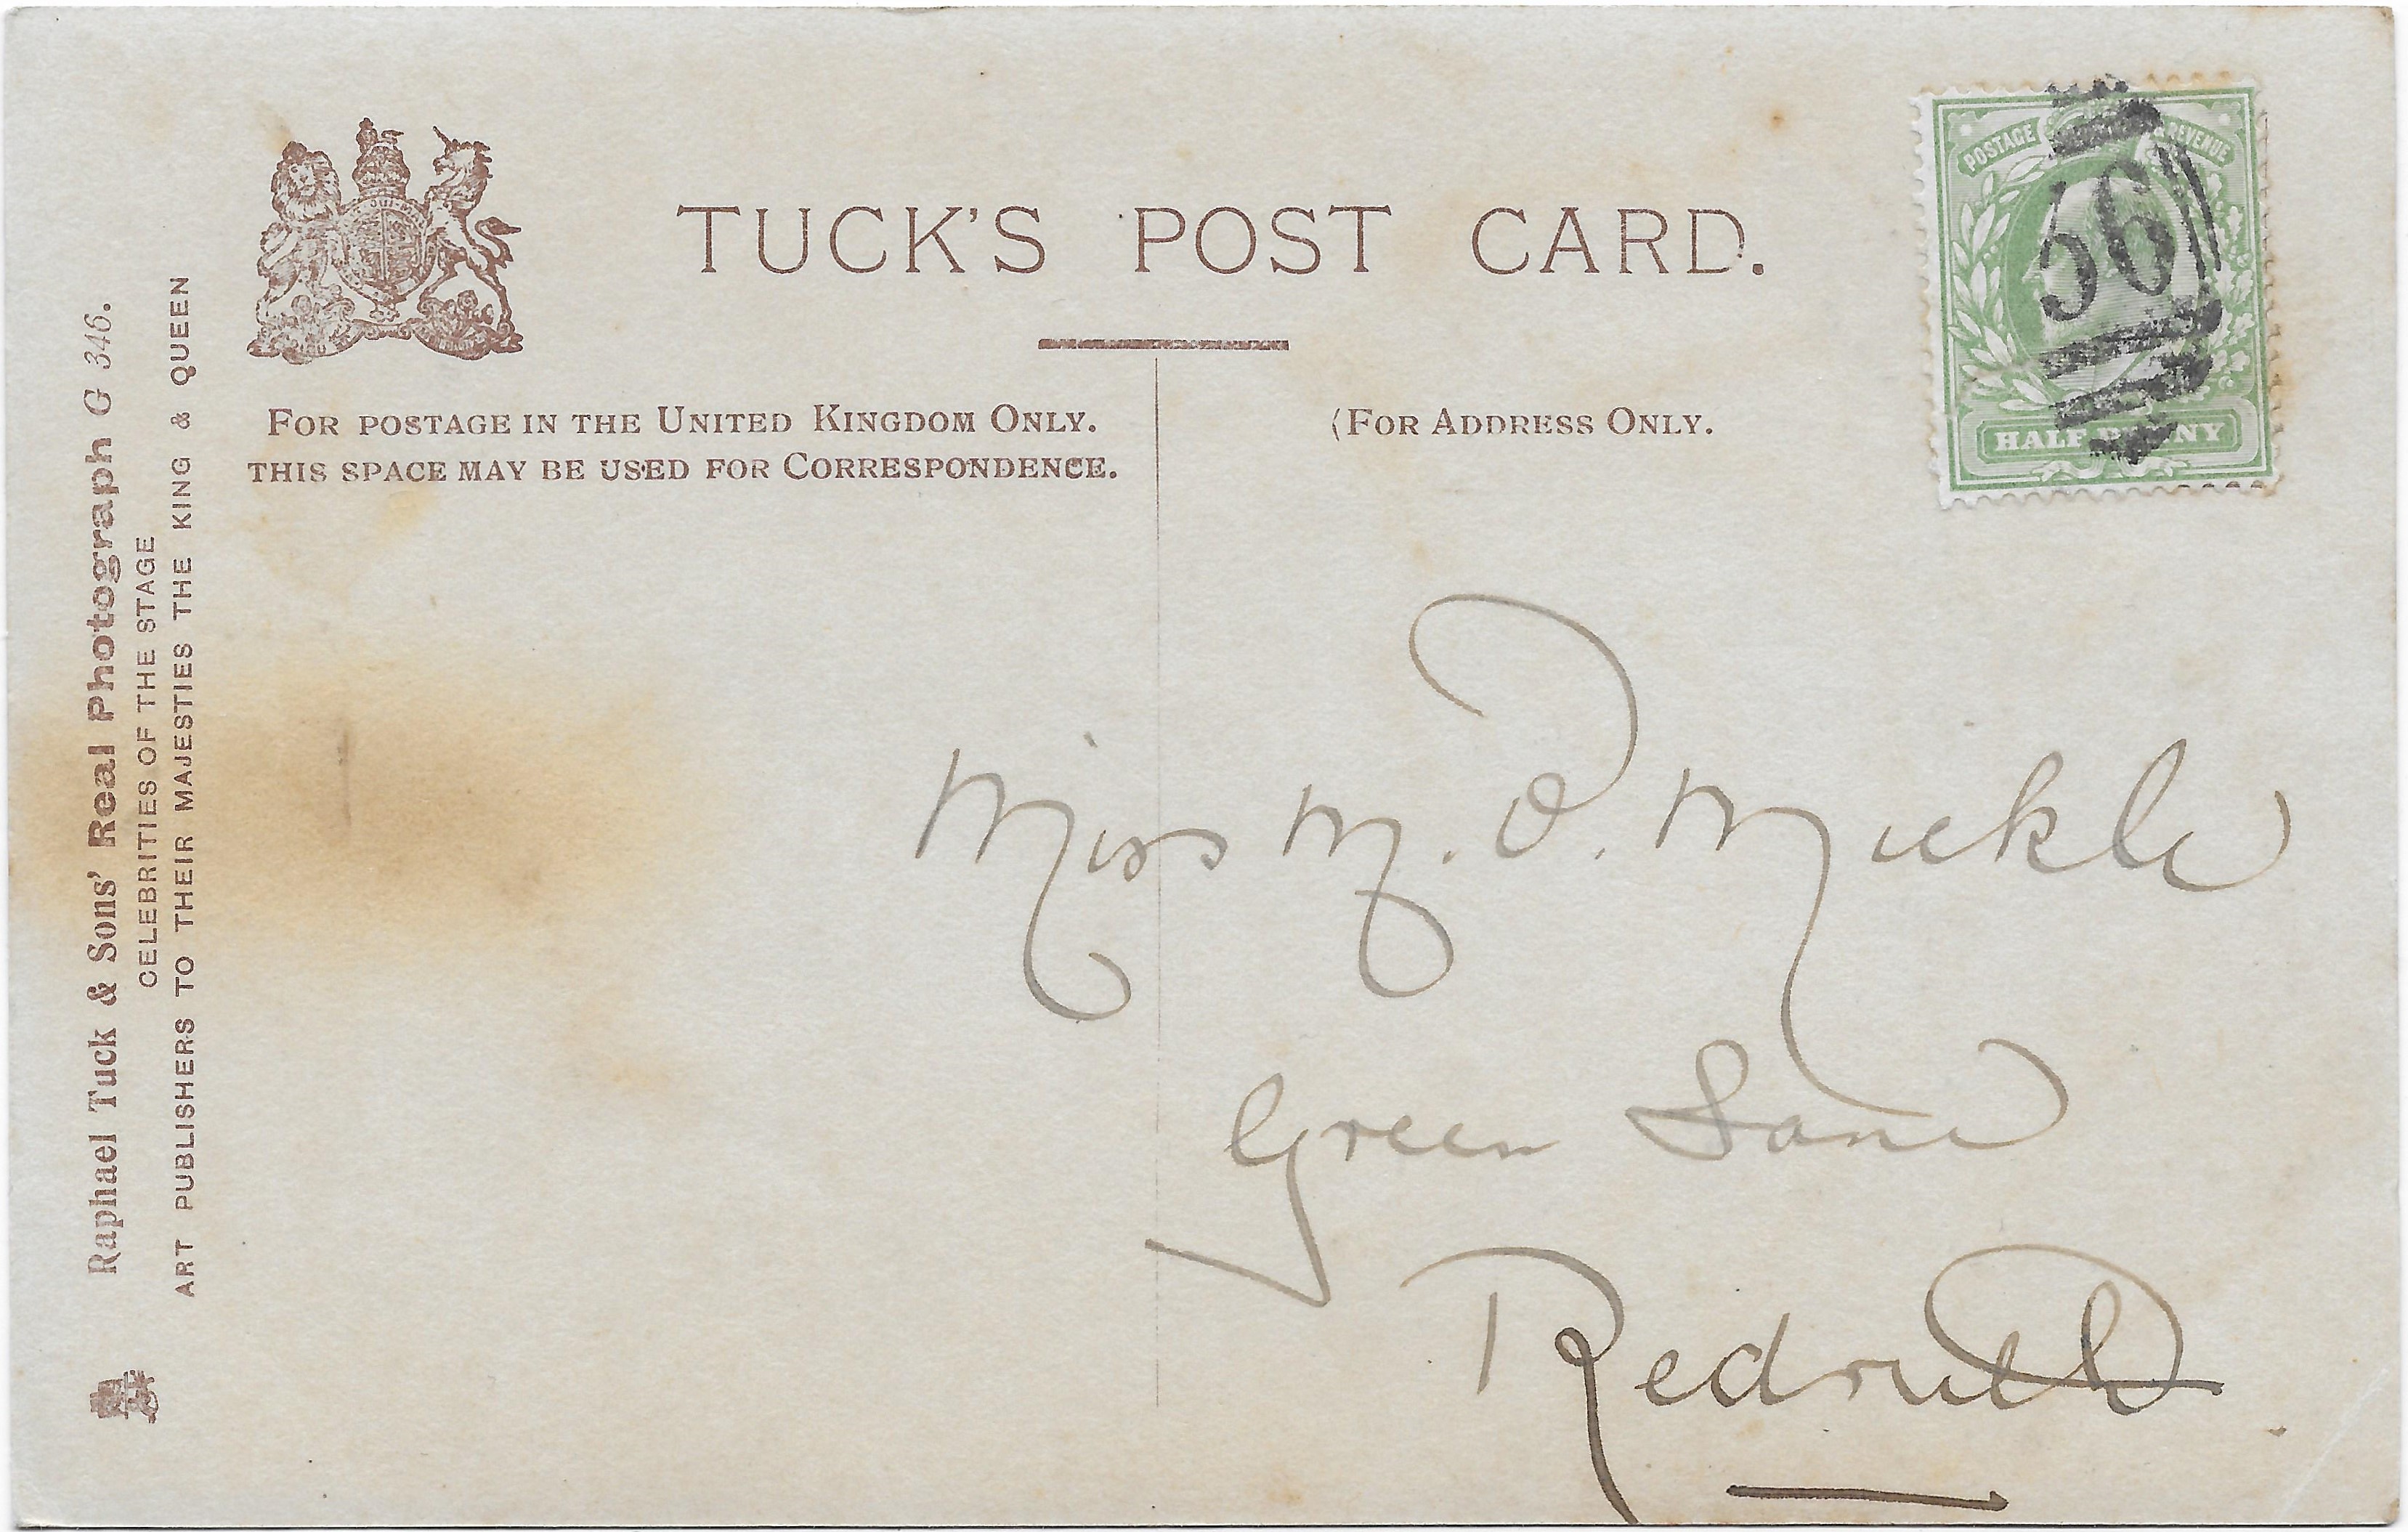 TUCK'S POST CARD.
FOR POSTAGE IN THE UNITED KINGDOM ONLY.
THIS SPACE MAY BE USED FOR CORRESPONDENCE.
(FOR ADDRESS ONLY.
POSTAGE & REVENUE
HALF PENNY
Raphael Tuck & Sons' Real Photograph G 346.
CELEBRITIES OF THE STAGE
ART PUBLISHERS TO THEIR MAJESTIES THE KING & QUEEN
Miss M. O. Mickle
Green Lane
Redruth